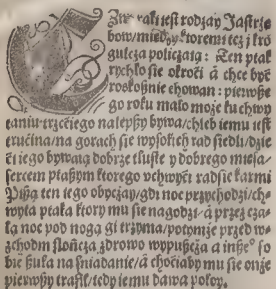 Czwartaki jest rodzay Jastrzę
bow/ miedzy ktoremi też j kro
gulcza policzaią: Ten ptak
rychło sie okroci á chce być
roskosznie chowan: pierwsze
go roku mało może ku chwy
taniu trzeciego nalepszy bywa/ chleb iemu iest
trucina/ na gorach sie wysokich rad siedli/ dzie
ci iego bywaią dobrze tłuste y dobrego miesa/
sercem ptaszym ktorego vchwyci radsie karmi
Piszą ten iego obyczay/ gdi noc przychodzi/ ch
wyta ptaka ktory mu sie nagodzi/ á przez czá
łą noc pod nogą gi trzyma/ potymże przed w
zchodem słończa zdrowo wypuszcza a insze so
bie szuka na śniadanie/ á chociaby mu sie onże
pierwszy trafił/ tedy iemu dawa pokoy.